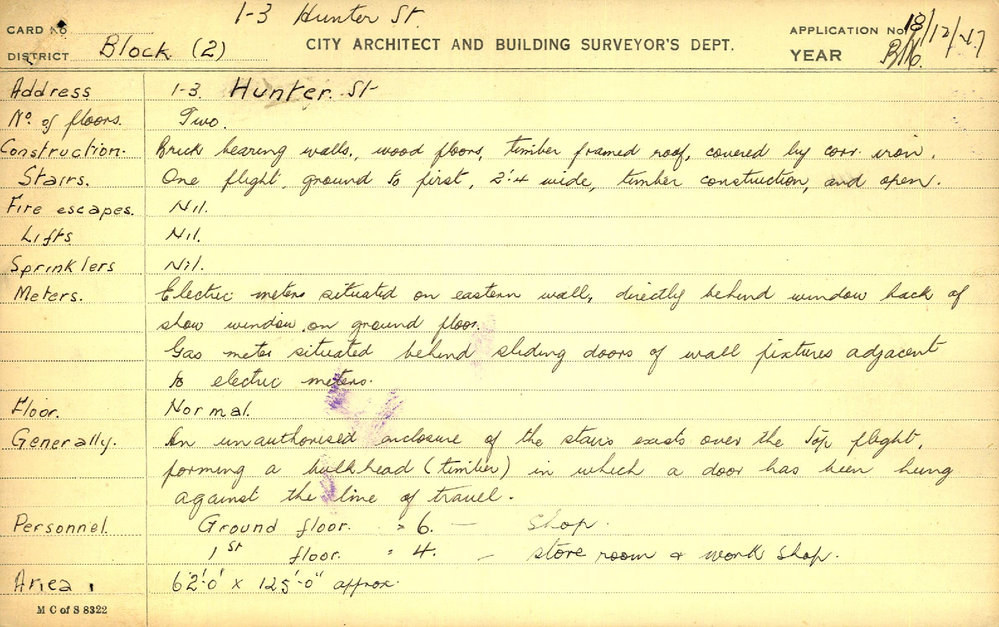 1-3 Hunter St.
CARD No
DISTRICT Block (2)
CITY ARCHITECT AND BUILDING SURVEYOR'S DEPT.
APPLICATION No 18/12/47
YEAR
Address 1-3. Hunter. St
No. of floors. Two.
Construction. Brick bearing walls., wood floors, timber framed roof, covered by corr. iron.
Stairs. One flight, ground to first, 2'.4 wide, timber construction, and open.
Fire escapes. Nil.
Lifts Nil.
Sprinklers Nil.
Meters. Electric meters situated on eastern wall, directly behind window back of
show window, on ground floor.
Gas meter situated behind sliding doors of wall fixtures adjacent
to electric meters.
Floor. Normal.
Generally. An unauthorised enclosure of the stairs exists over the top flight,
forming a bulkhead (timber) in which a door has been hung
against the line of travel.
Personnel. Ground floor. = 6. — Shop.
1st floor. = 4. — store room & work shop.
Area. 62'-0" x 125'-0" approx.
M C of S 8322